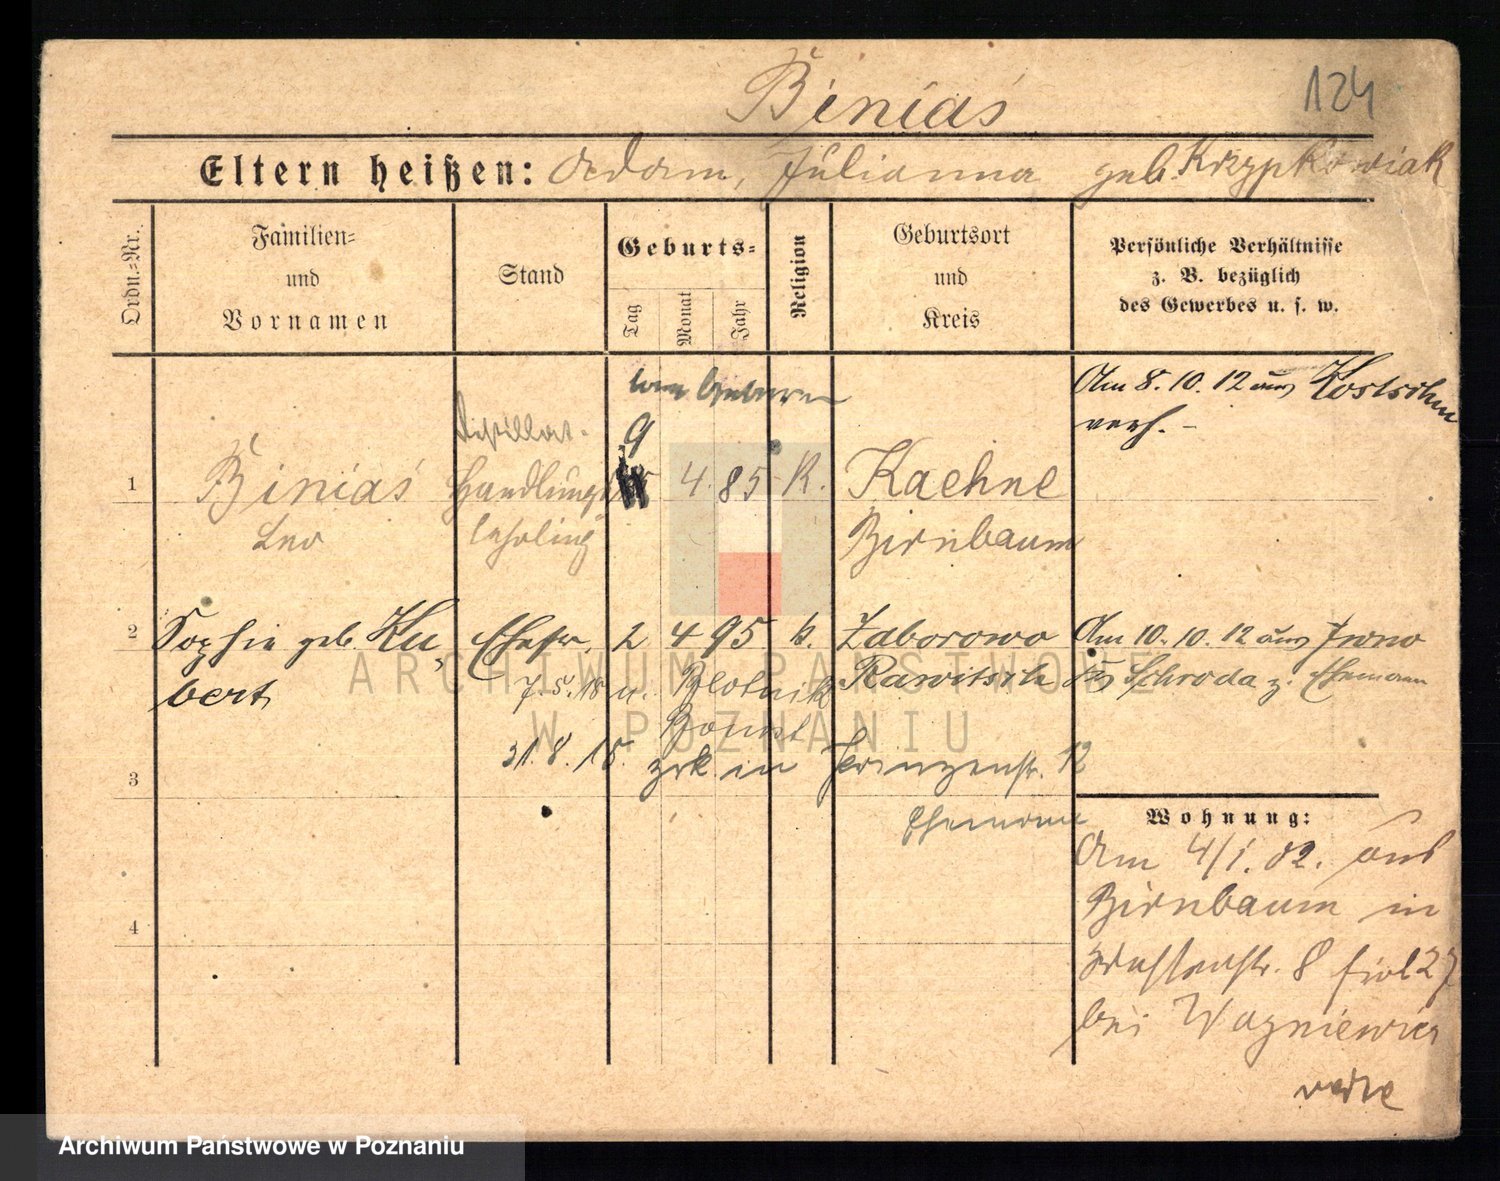 Biniaś 124
Eltern heißen: Adam, Julianna geb. Krzypkowiak
Ordn.=Nr.
Familien=
und
Vornamen
Stand
Geburts=
Tag
Monat
Jahr
Religion
Geburtsort
und
Kreis
Persönliche Verhältnisse
z. B. bezüglich
des Gewerbes u. s. w.
Am 8. 10. 12 aus Kostschin
verh. -
Destillat.
9
1 Biniaś Handlungs 4. 85 K. Kaehne
Leo lehrling Birnbaum
2 Sophie geb. Ku Ehefr. 2 4 95 k. Zaborowo Am 10. 10. 12 aus
bert Rawitsch Schroda z. Ehemann
7. 5. 18 n.
31. 8. 18. zrk. in Prinzenstr. 12
3
Ehemann
Wohnung:
Am 4/1. 02. aus
Birnbaum in
8
4
bei Wozniewicz
ARCHIWUM PAŃSTWOWE
W POZNANIU
Archiwum Państwowe w Poznaniu